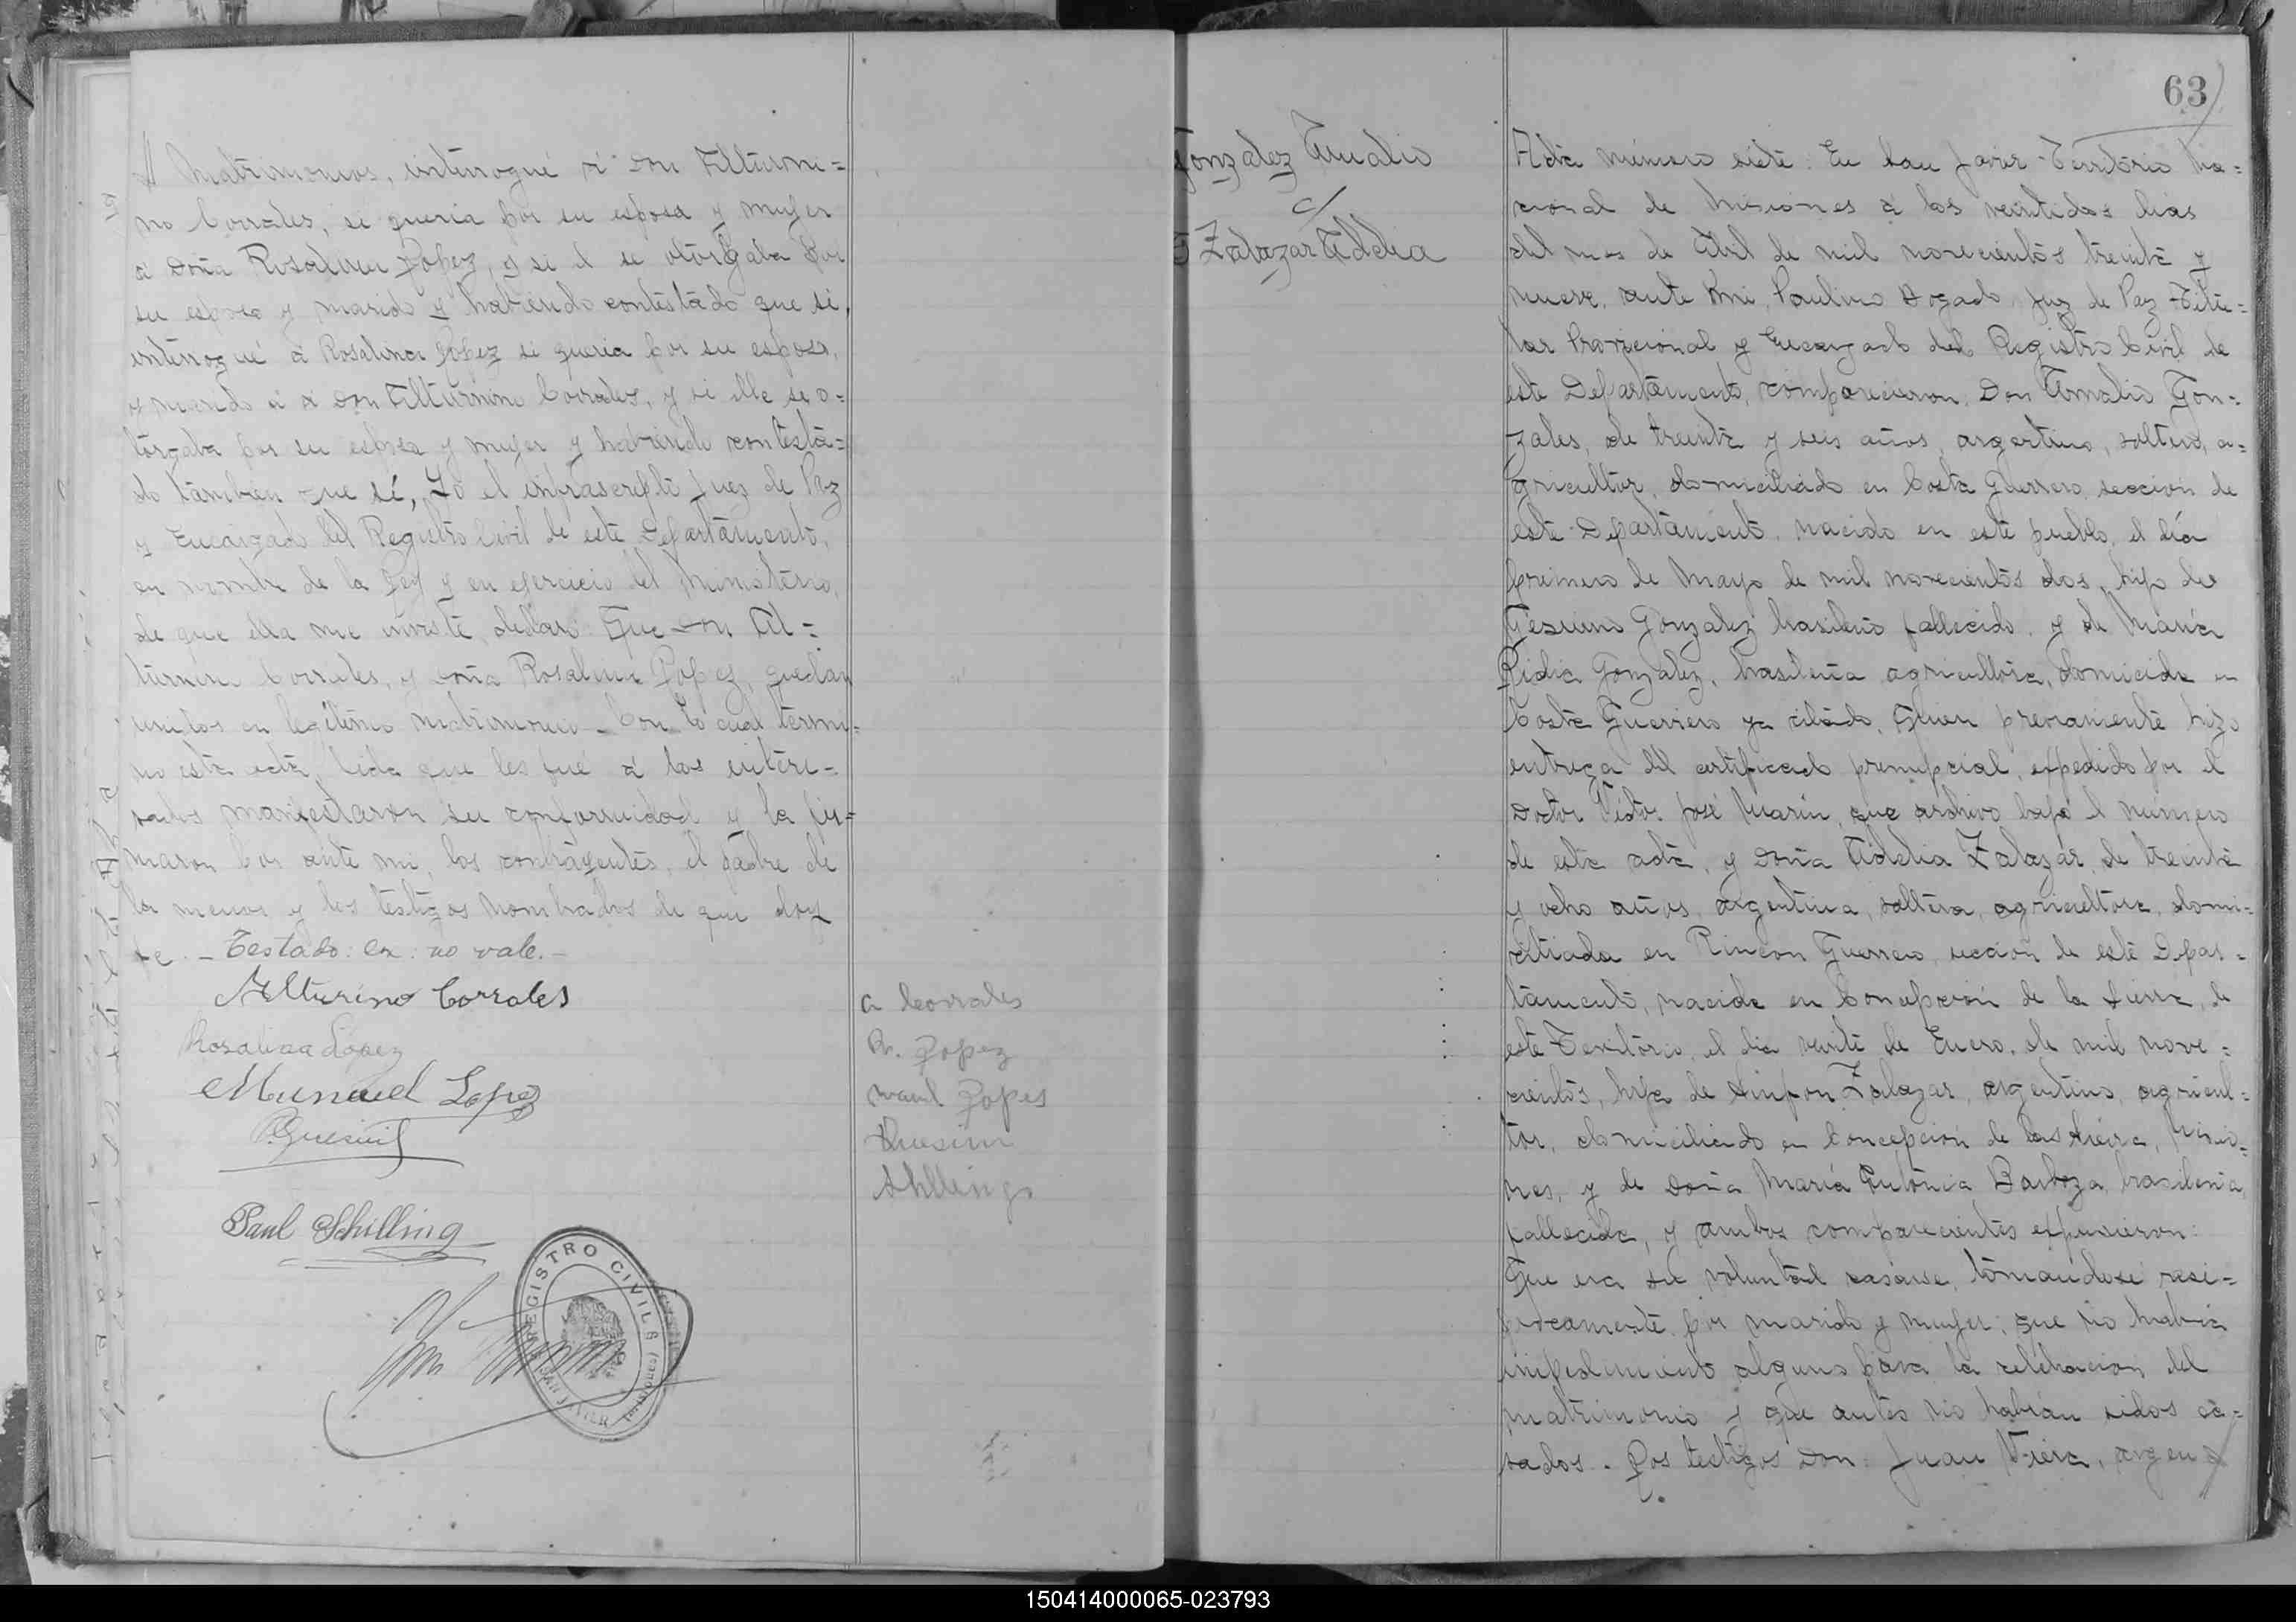 Matrimonios, interrogué á Don Alturni=
no Corrales, si queria por su esposa y mujer
a Doña Rosalina Lopez, y si el se otorgaba por
su esposo y marido y habiendo contestado que si,
interrogué a Rosalina Lopez si queria por su esposo,
y marido a a Don Alturnino Corrales, y si ella se o=
torgaba por su esposa y mujer y habiendo contesta=
do tambien que sí, Yo el infrascrepto Juez de Paz
y Encargado del Registro Civil de este Departamento,
en nombre de la Ley y en ejercicio del Ministerio,
de que ella me inviste, declaro: Que Don Al=
turnino Corrales, y Doña Rosalina Lopez, quedan
unidos en legítimo matrimonio - Con lo cual termi=
no esta acta, leida que les fué a los intere=
sados manifestaron su conformidad y la fir=
maron por ante mi, los contrayentes, el padre de
la menor y los testigos nombrados de que doy
fe. - Testado: en: no vale. -
Alturino Corrales
Rosalina Lopez
Manuel Lopez
Paul Schilling
REGISTRO CIVIL
SAN JAVIER (Misiones)
a Corrales
R. Lopez
manl Lopes
Shllings
63
Gonzalez Amalio
c/
Zalazar Adelia
Acta número siete: En San Javier - Territorio Na=
cional de Misiones a los veintidos dias
del mes de Abril de mil novecientos treinta y
nueve, ante mi, Paulino Dogado Juez de Paz Titu=
lar Provicional y Encargado del Registro Civil de
este Departamento, comparecieron, Don Amalio Gon=
zales, de treinta y seis años, argentino, soltero, a=
gricultor, domiciliado en Costa Guerrero, sección de
este Departamento, nacido en este pueblo, el día
primero de Mayo de mil novecientos dos, hijo de
Gonzalez brasileño fallecido, y de María
Gonzalez, brasileña agricultora, domicida en
Costa Guerrero ya citado, Quien previamente hizo
entrega del certificado prenupcial, expedido por el
Doctor Víctor José Marín, que archivo bajo el número
de esta acta, y Doña Adelia Zalazar, de treinta
y ocho años, argentina, soltera, agricultora, domi=
ciliada en Rincon Guerrero, sección de este Depar=
tamento, nacida en Concepción de la Sierra, de
este Territorio, el dia veinte de Enero, de mil nove=
cientos, hija de Simfon Zalazar, argentino, agricul=
tor, domiciliado en Concepción de la Sierra, Misio=
nes, y de Doña María Antonia Barboza, brasileña,
fallecida, y ambos comparecientes expusieron:
Que era su voluntad casarse, tomandose reci=
procamente por marido y mujer; que no habia
impedimento alguno para la celebracion del
matrimonio y que antes no habían sidos ca=
sados. Los testigos Don: Juan Viera, argen
150414000065-023793